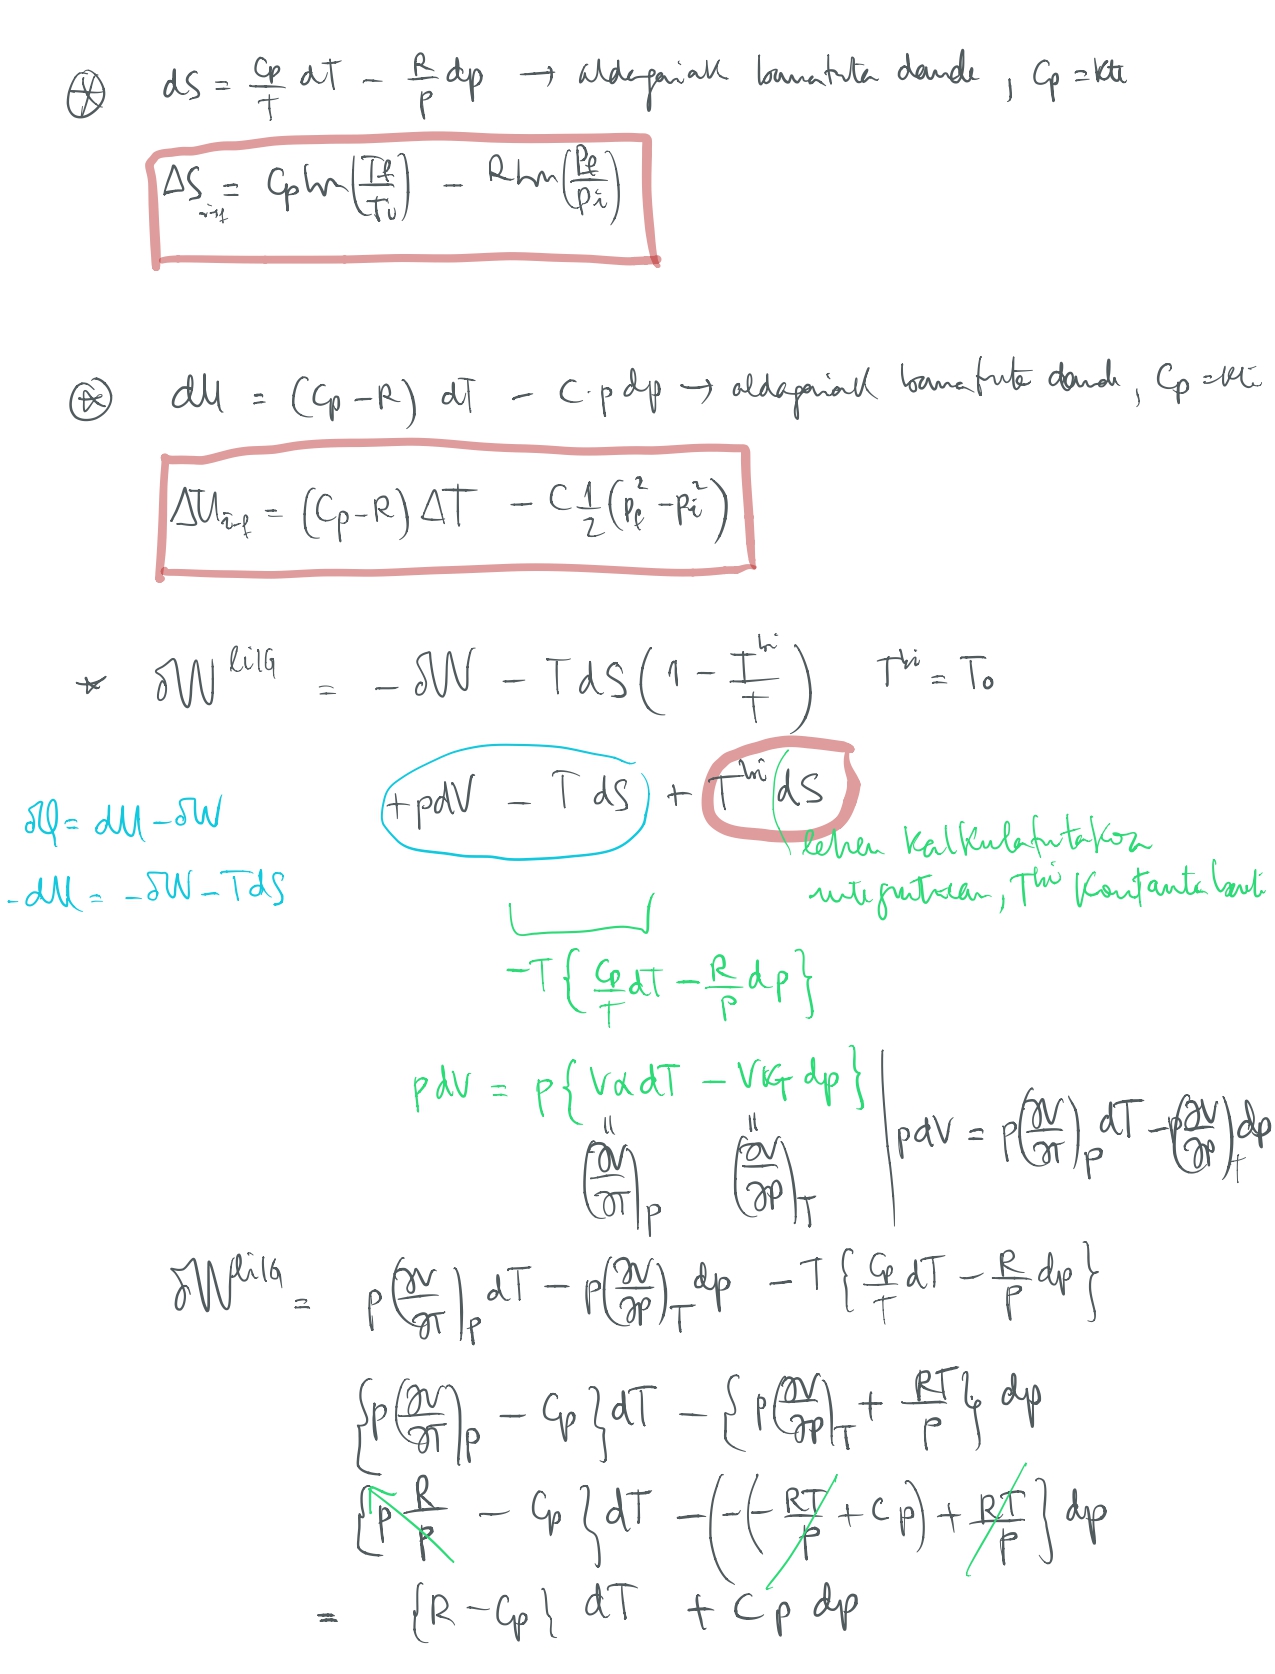 ⊛ dS = Cp/T dT − R/p dp → aldagaiak banatuta daude, Cp = kte
ΔS i→f = Cp ln(Tf/Ti) − R ln(pf/pi)
⊛ dU = (Cp − R) dT − C·p dp → aldagaiak banatuta daude, Cp = kte
ΔU i-f = (Cp − R) ΔT − C 1/2 (pf² − pi²)
* δW^lilG = − δW − T dS (1 − T^bi/T) T^bi = T₀
+pdV − T dS + T^bi dS
δQ = dU − δW
lehen kalkulatutakoa
−dU = −δW − TdS
integratzean, T^bi konstante
−T{Cp/T dT − R/p dp}
p dV = p{Vα dT − Vκ_T dp} | pdV = p(∂V/∂T)_p dT − p(∂V/∂p)_T dp
" "
(∂V/∂T)_p (∂V/∂p)_T
δW^lilG = p(∂V/∂T)_p dT − p(∂V/∂p)_T dp − T{Cp/T dT − R/p dp}
{p(∂V/∂T)_p − Cp} dT − {p(∂V/∂p)_T + RT/p} dp
{p R/p − Cp} dT − (−(−RT/p + Cp) + RT/p} dp
= {R − Cp} dT + Cp dp